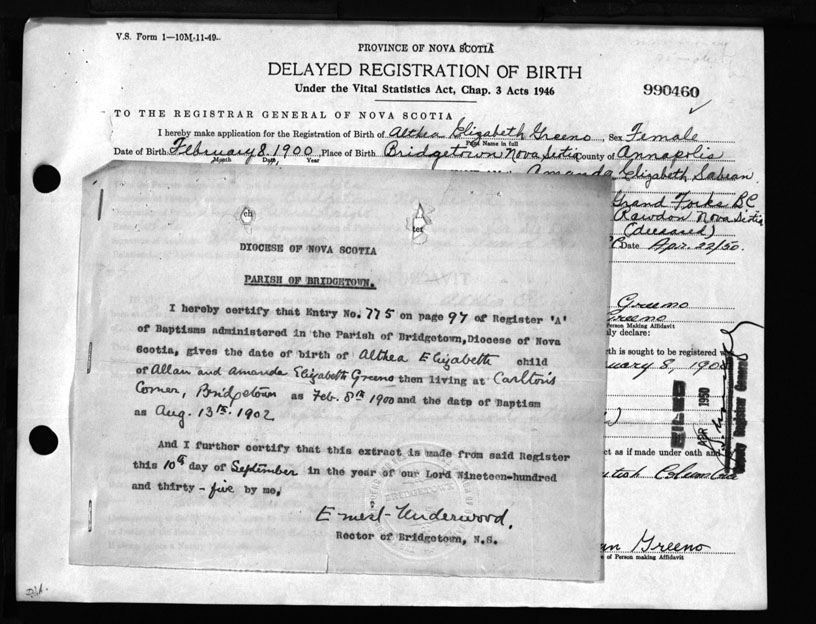 V.S. Form 1—10M-11-49.
PROVINCE OF NOVA SCOTIA
DELAYED REGISTRATION OF BIRTH
Under the Vital Statistics Act, Chap. 3 Acts 1946
990460
TO THE REGISTRAR GENERAL OF NOVA SCOTIA
I hereby make application for the Registration of Birth of Althea Elizabeth Greeno, Sex Female
Name in full
Date of Birth February 8. 1900 Place of Birth Bridgetown Nova Scotia County of Annapolis
Month Day Year
Amanda Elizabeth
Grand Forks BC
Rawdon Nova Scotia
(deceased)
Date Apr. 22/50.
Greeno
Greeno
Person Making Affidavit
ly declare:
rth is sought to be registered w
8, 190
APR 1950
Deputy Registrar General
ct as if made under oath and
Greeno
of Person making Affidavit
ch
ter
DIOCESE OF NOVA SCOTIA
PARISH OF BRIDGETOWN.
I hereby certify that Entry No. 775 on page 97 of Register 'A'
of Baptisms administered in the Parish of Bridgetown,Diocese of Nova
Scotia, gives the date of birth of Althea Elizabeth child
of Allan and Amanda Elizabeth Greeno then living at Carlton's
Corner, Bridgetown as Feb. 8th 1900 and the date of Baptism
as Aug. 13th. 1902
And I further certify that this extract is made from said Register
this 10th day of September in the year of our Lord Nineteen-hundred
and thirty - five by me,
Ernest Underwood.
Rector of Bridgetown, N.S.